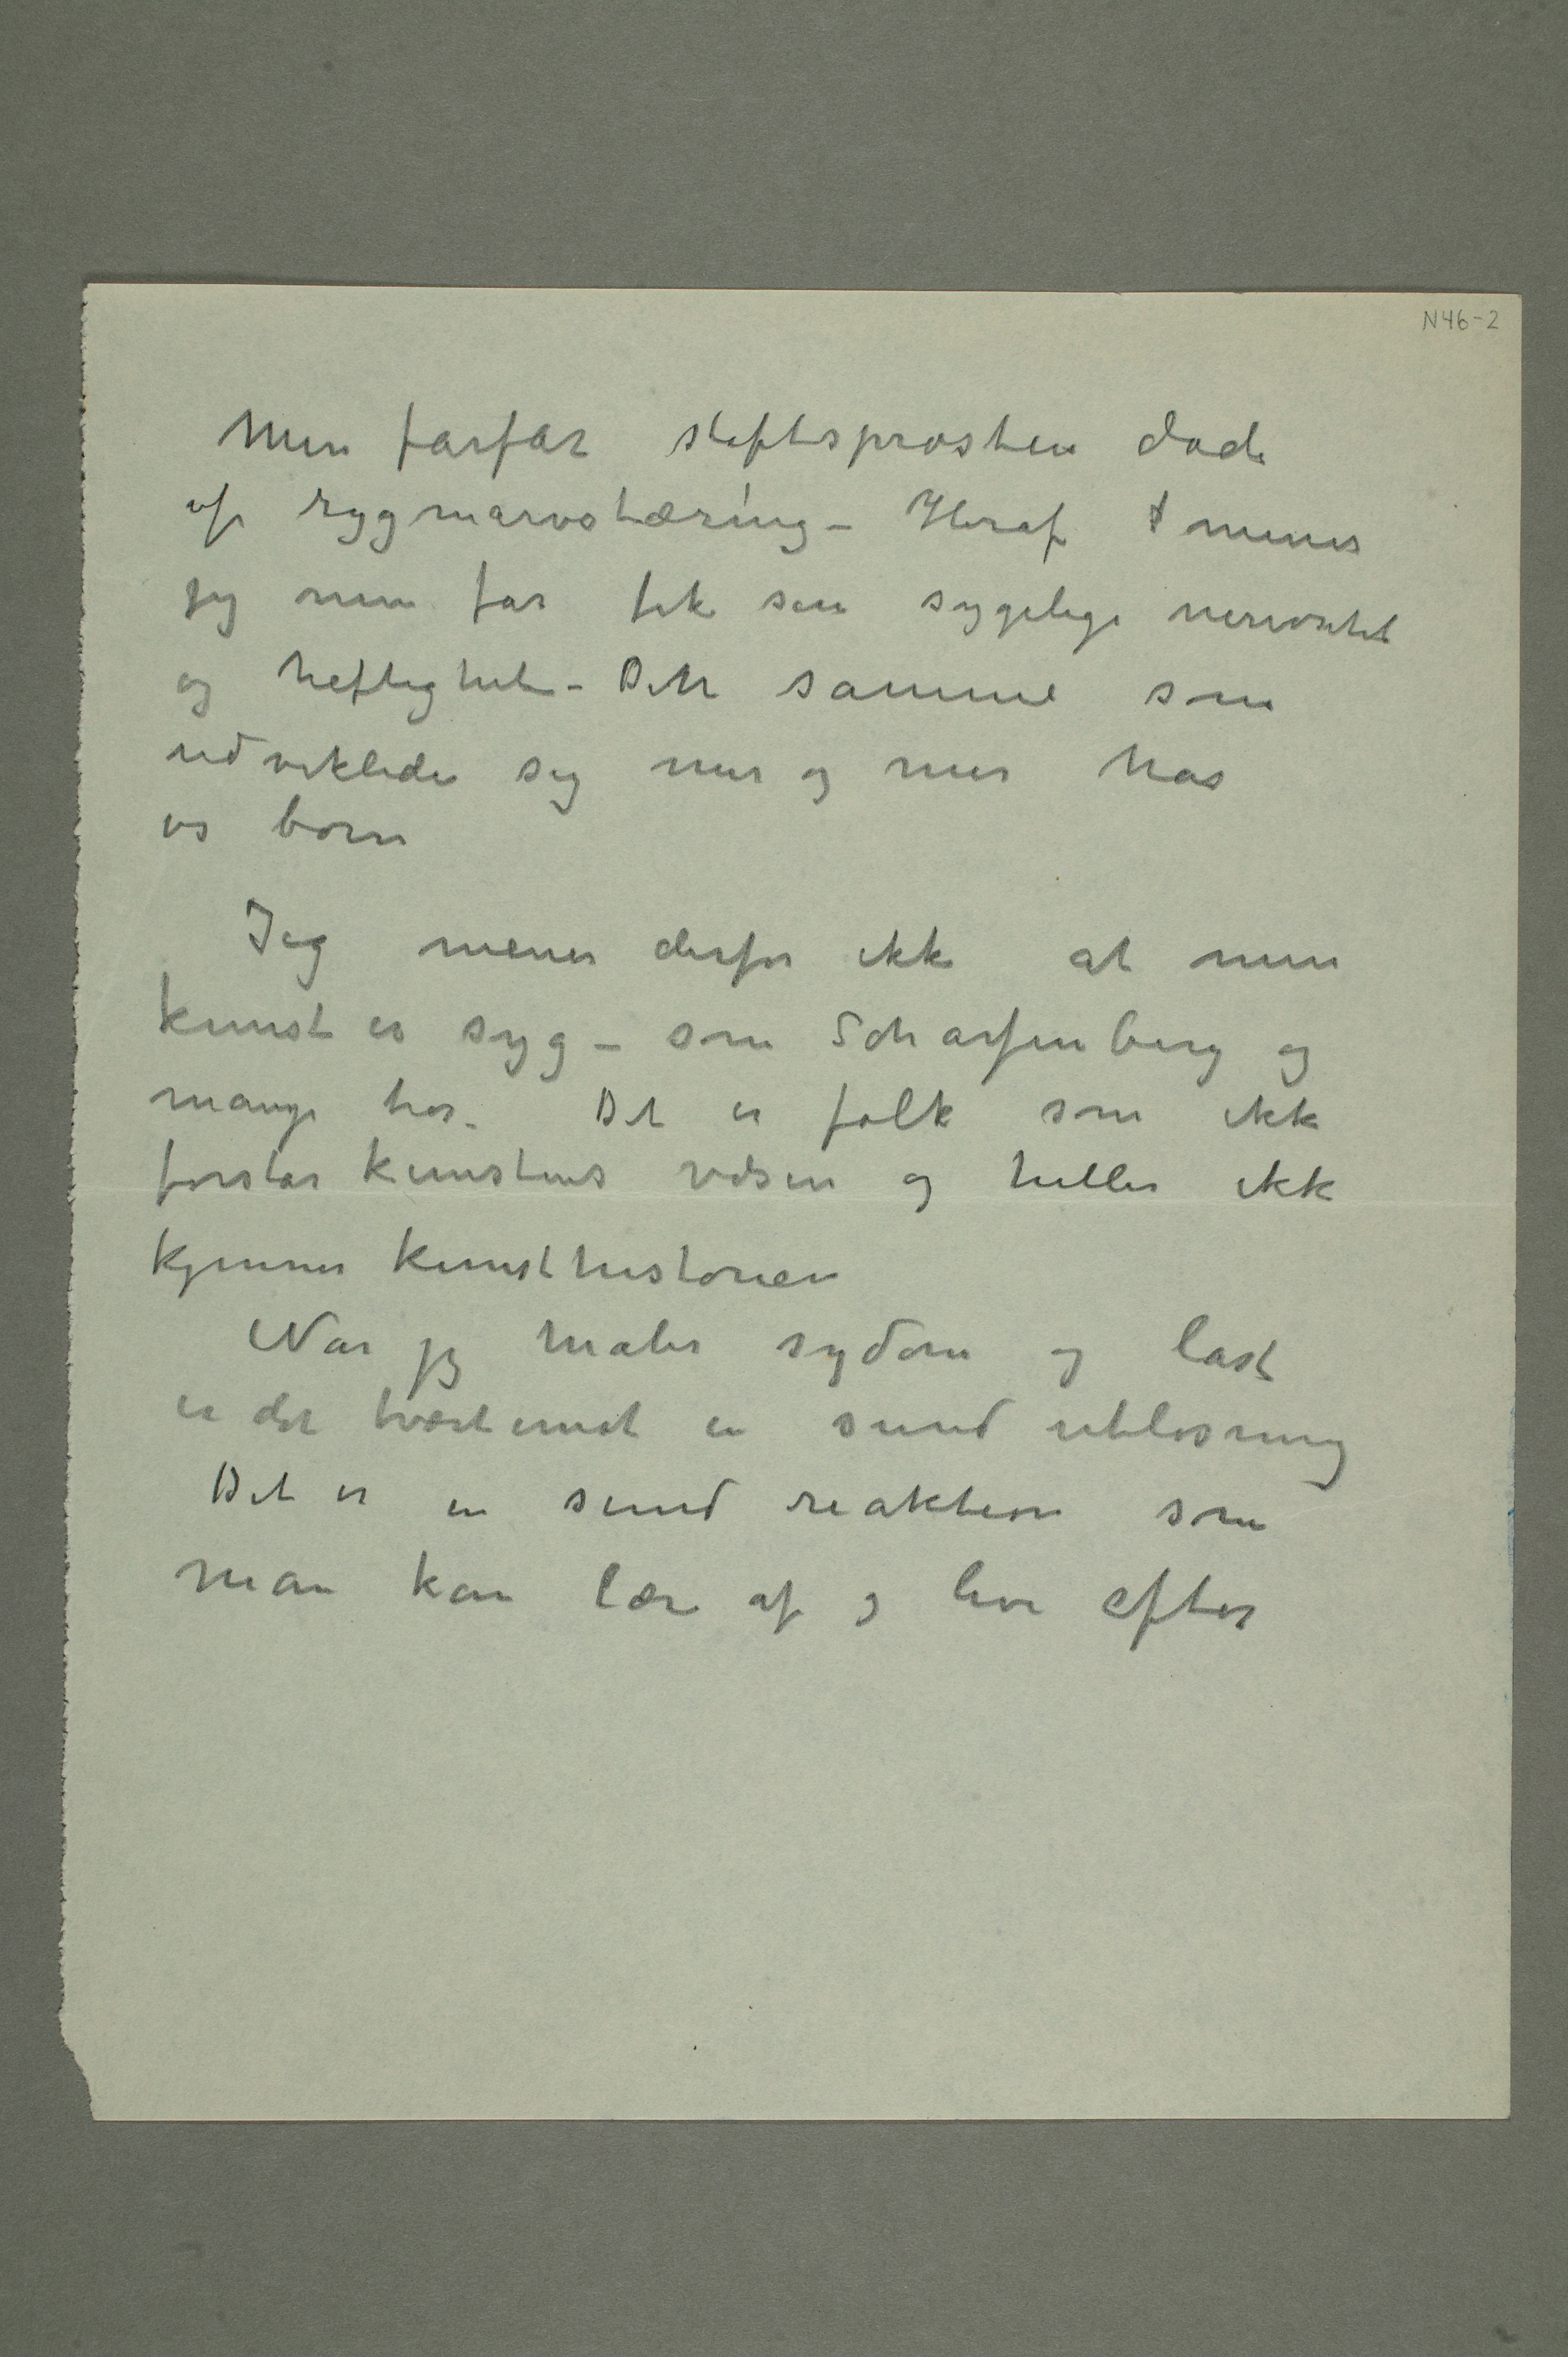 N46-2
Min farfar stiftsprosten døde
af rygmarvstæring – Heraf mener
jeg min far fik sin sygelige nervøsitet
og heftighet – Dette samme som
udviklede sig mer og mer hos
os børn
Jeg mener derfor ikke at min
kunst er syg – som Scharfenberg og
mange tror. Det er folk som ikke
forstår kunstens væsen og heller ikke
kjenner kunsthistorien
Når jeg maler sygdom og last
er det tværtimot en sund utløsning
Det er en sund reaktion som
man kan lære af og leve efter